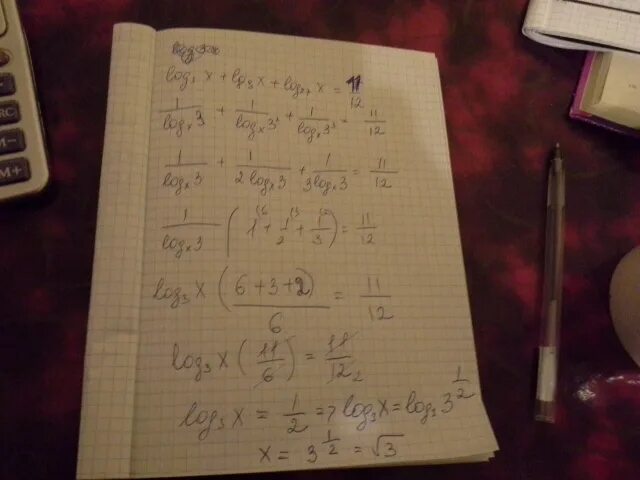 log₃ x + log₉ x + log₂₇ x = 11/12
1/logₓ3 + 1/logₓ3² + 1/logₓ3³ = 11/12
1/logₓ3 + 1/2logₓ3 + 1/3logₓ3 = 11/12
1/logₓ3 (1 + 1/2 + 1/3) = 11/12
log₃ x ((6 + 3 + 2)/6) = 11/12
log₃ x (11/6) = 11/12 2
log₃ x = 1/2 => log₃ x = log₃ 3^(1/2)
x = 3^(1/2) = √3
RC
M−
M+